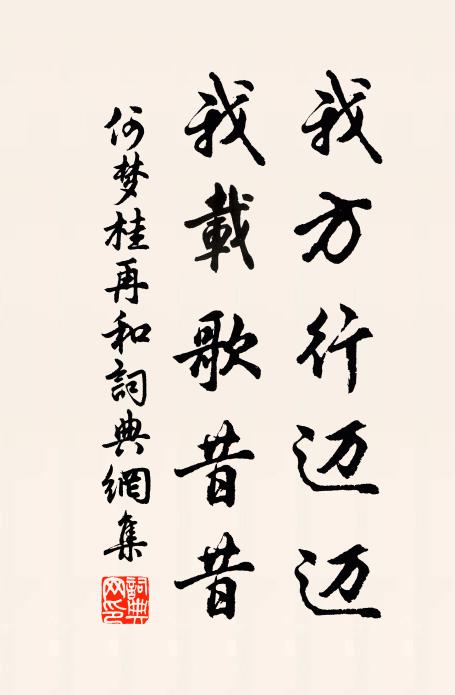 我方行迈迈
我載歌昔昔
何梦桂再和詞典網集
詞典網印